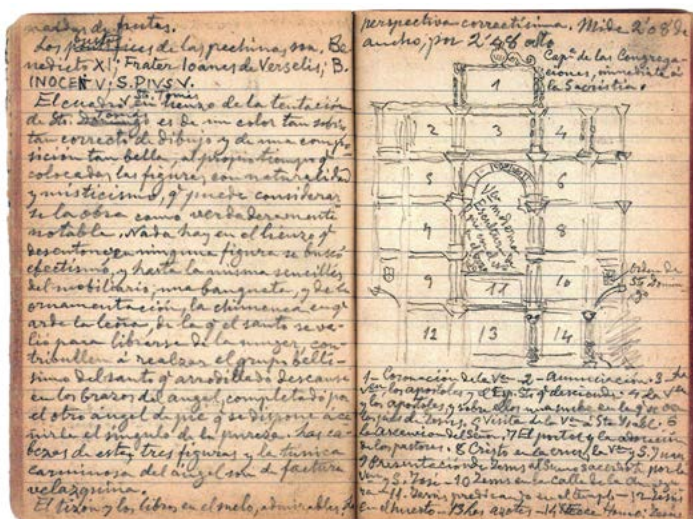 neados de frutas.
Los bustos de las pechinas son, Be
nedicto XI; Frater Ioanes de Verselis; B.
INOCEN V; S. PIVS V.
El cuadro en lienzo de la tentación
de Sto. Tomás es de un color tan sobrio
tan correcto de dibujo y de una compo
sición tan bella, al propio tiempo q.
colocadas las figuras con naturalidad
y misticismo, q. puede considerar
se la obra como verdaderamente
notable. Nada hay en el lienzo q.
desentone, en ninguna figura se buscó
efectismo, y hasta la misma sencillez
del mobiliario, una banqueta, y de la
ornamentación, la chimenea en q.
arde la leña, de la q. el santo se va-
lió para librarse de la mujer, con
tribullen á realzar el grupo bellí-
simo del santo q. arrodillado descansa
en los brazos del ángel, completado por
el otro ángel de pie q. se dispone á ce
ñirle el síngulo de la pureza. Las ca-
bezas de estas tres figuras y la túnica
carminosa del ángel son de factura
velazquina.
El tizón y los libros en el suelo, admirables. La
perspectiva correctísima. Mide 2'08 de
ancho, por 2'48 alto
Cap.ª de las Congrega
ciones, inmediata á
la Sacristía.
1
2 3 4
5 6
Vn moderna
Escultura
7 8
9 10
11
Orden de
Sto Domin
go
12 13 14
1- Coronación de la Vn - 2 - Anunciación - 3 - La
Vn los apóstoles y el Esp. Sto q. desciende - 4 La Vn
y los apóstoles, y sobre ellos una nube en la q. se ven
los pies de Jesús. 5 Visita de la Vn a Sta Isabel. 6
la Ascensión del Señor. 7 El portal y la adoración
de los pastores. 8 Cristo en la cruz, la Vn y S. Juan
9 Presentación de Jesús al Sumo sacerdote por la
Vn y S. José - 10 Jesus en la calle de la Amargu
ra - 11. Jesús predicando en el templo - 12 Jesús
en el huerto - 13 Los azotes - 14 Ecce Homo; Jesús